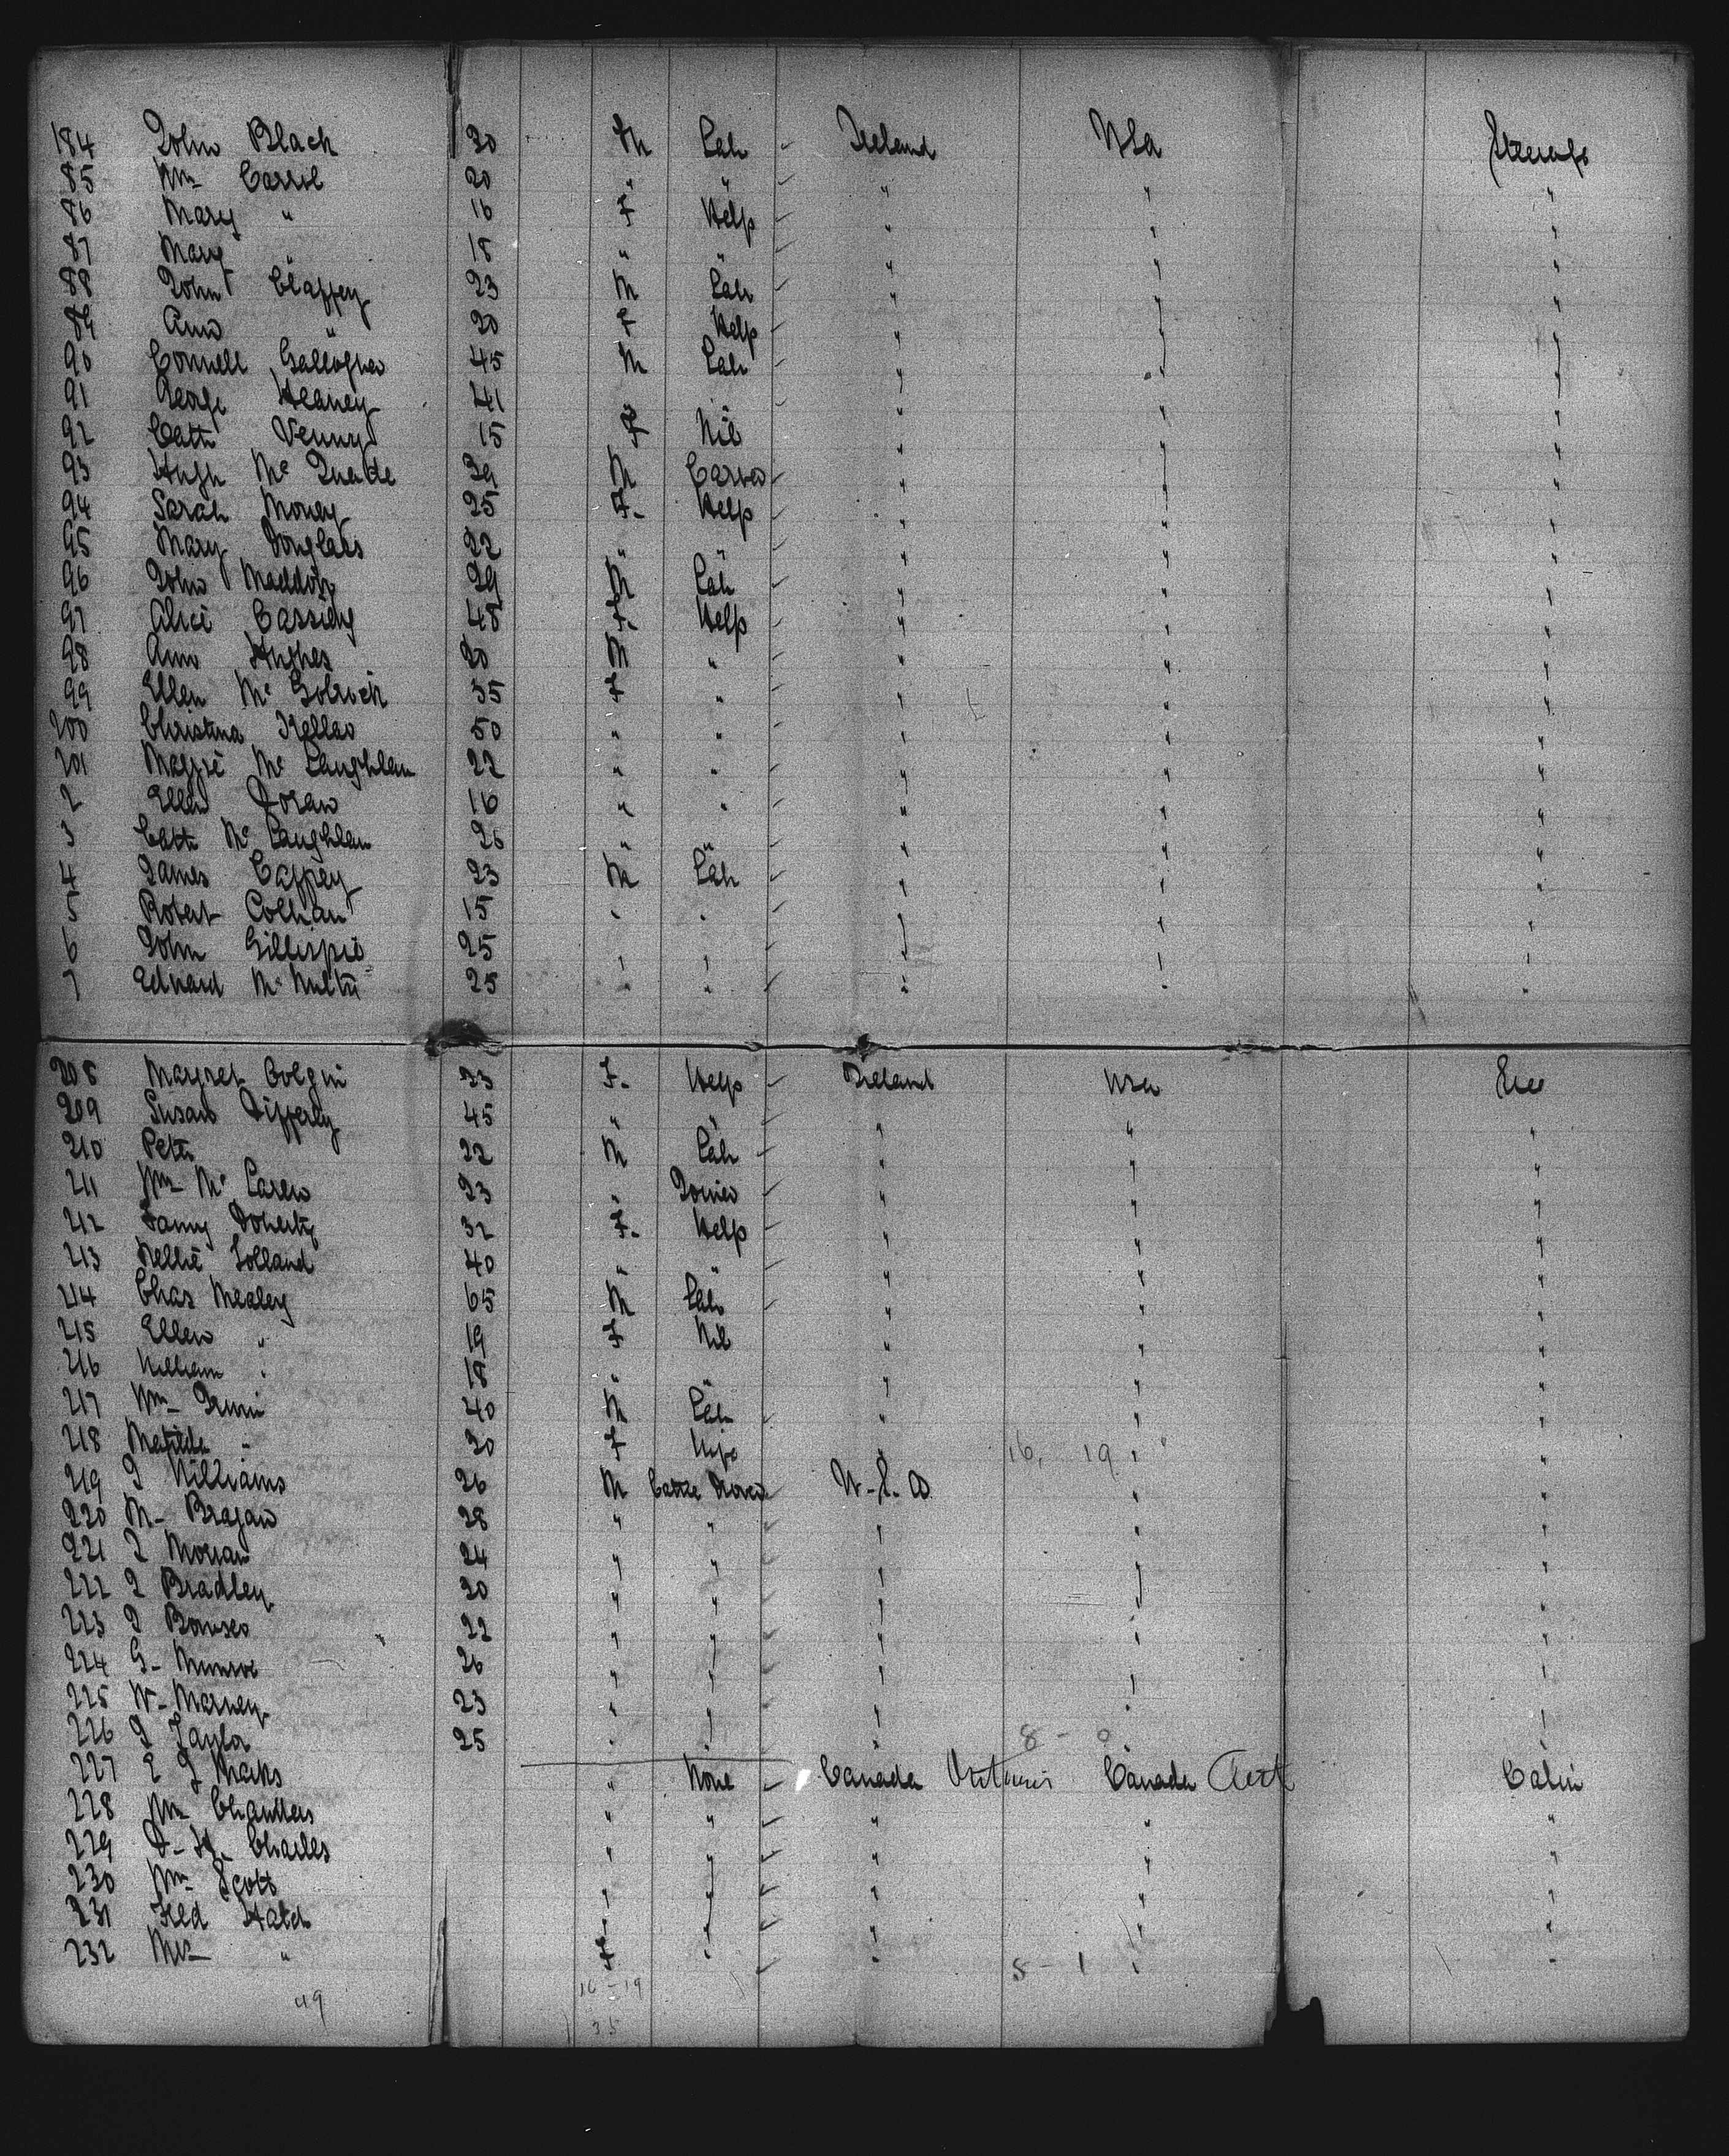 184 John Black 30 M Lab Ireland USA Steerage
85 Wm Carrol 20 " " " " "
86 Mary " 16 F Help " " "
87 Mary " 18 " " " " "
88 John Claffey 23 M Lab " " "
89 Ann " 20 F Help " " "
90 Connell Gallogher 45 M Lab " " "
91 George Heaney 41 " " " " "
92 Cath Venny 15 F Nil " " "
93 Hugh Mc Quade 29 M Carver " " "
94 Sarah Money 25 F. Help " " "
95 Mary Douglass 22 " " " " "
96 John 29 M Lab " " "
97 Alice Cassidy 48 F. Help " " "
98 Ann Hughes 20 M " " " "
99 Ellen Mc Golrick 35 F " " " "
200 Christina Kellar 50 " " " " "
201 Maggie Mc Laughlan 22 " " " " "
2 Ellen Doran 16 " " " " "
3 Cath Mc Laughlan 26 " " " " "
4 James Caffrey 23 M Lab " " "
5 Robert Colhan 15 " " " " "
6 John Gillispie 25 " " " " "
7 Edward Mc Nulty 25 " " " " "
208 Margret Colgin 33 F. Help Ireland USA Stee
209 Susan Differly 45 " " " " "
210 Peter 22 M Lab " " "
211 Wm Mc Laren 23 " Joiner " " "
212 Fanny Doherty 32 F. Help " " "
213 Nellie Holland 40 " " " " "
214 Chas Mealey 65 M Lab " " "
215 Ellen " 19 F Nil " " "
216 William " 18 " " " " "
217 Wm Irwin 40 M Lab " " "
218 Matilda " 30 F Wife " 16, 19 " "
219 J Williams 26 M Cattle Drover U.S.A. " "
220 M- Bragan 28 " " " " "
221 J Moran 24 " " " " "
222 J Bradley 30 " " " " "
223 J 22 " " " " "
224 G- Munroe 26 " " " " "
225 W- Marney 23 " " " " "
226 J Taylor 25 " " " 8 - 0 " "
227 E J Marks " None Canada Ontario Canada Cabin
228 Wm Chandlers " " " " "
229 D- H- Charles " " " " "
230 Wm Scott " " " " "
231 Fred Hatch " " " " "
232 Mrs " F " " 8 - 1 " "
49 16 - 19
35